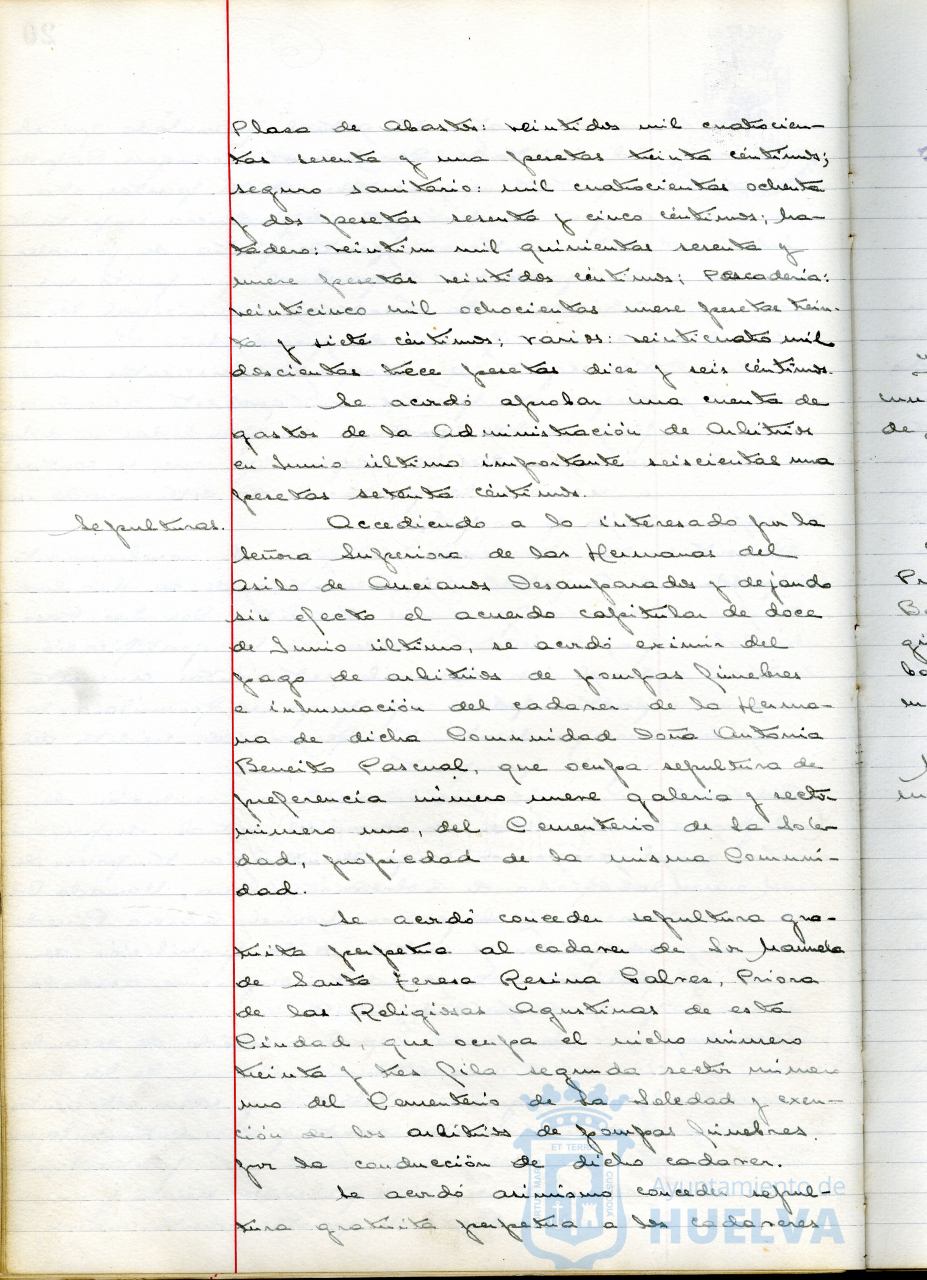 Plaza de Abastos: veintidos mil cuatrocien-
tas sesenta y una pesetas treinta céntimos;
seguro sanitario: mil cuatrocientas ochenta
y dos pesetas sesenta y cinco céntimos; Ma-
tadero: veintiun mil quinientas sesenta y
nueve pesetas veintidos céntimos; Pescadería:
veinticinco mil ochocientas nueve pesetas trein-
ta y siete céntimos; varios: veinticuatro mil
doscientas trece pesetas diez y seis céntimos.
Se acordó aprobar una cuenta de
gastos de la Administración de Arbitrios
en Junio último importante seiscientas una
pesetas setenta céntimos.
Sepulturas.
Accediendo a lo interesado por la
Señora Superiora de las Hermanas del
Asilo de Ancianos Desamparados y dejando
sin efecto el acuerdo capitular de doce
de Junio último, se acordó eximir del
pago de arbitrios de pompas fúnebres
e inhumación del cadaver de la Herma-
na de dicha Comunidad Doña Antonia
Beneito Pascual, que ocupa sepultura de
preferencia número nueve galería y sector
número uno, del Cementerio de la Sole-
dad, propiedad de la misma Comuni-
dad.
Se acordó conceder sepultura gra-
tuita perpetua al cadaver de Sor Manuela
de Santa Teresa Resina Galvez, Priora
de las Religiosas Agustinas de esta
Ciudad, que ocupa el nicho número
treinta y tres fila segunda sector número
uno del Cementerio de la Soledad y exen-
ción de los arbitrios de pompas fúnebres
por la conducción de dicho cadaver.
Se acordó asimismo conceder sepul-
tura gratuita perpetua a los cadaveres
Ayuntamiento de
HUELVA